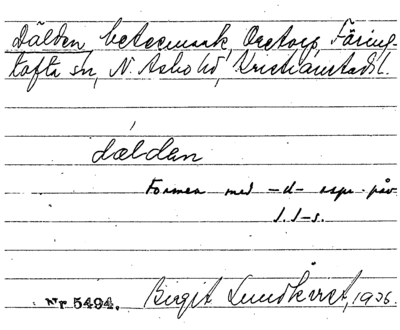 Dälden, betesmark, Oretorp, Färing-
tofta sn, N. Åsbo hd, Kristianstads l.
dældan
Formen med -d- uppr. påv.
Nr 5494. Birgit Lundkvist, 1936.